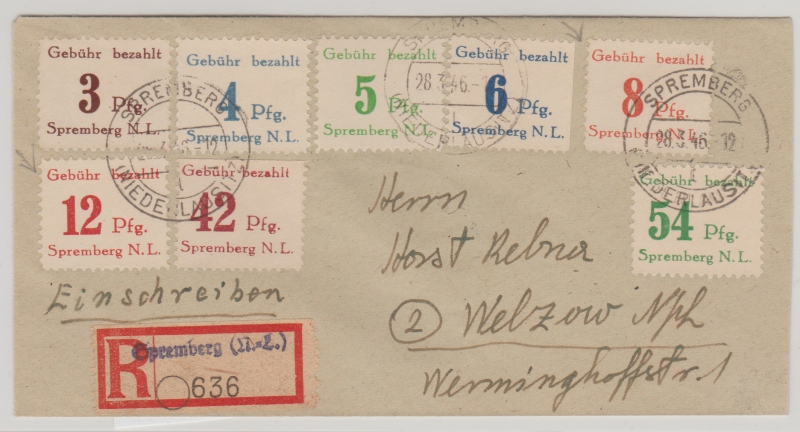 Gebühr bezahlt
3 Pfg.
Spremberg N.L.
Gebühr bezahlt
4 Pfg.
Spremberg N.L.
Gebühr bezahlt
5 Pfg.
Spremberg N.L.
Gebühr bezahlt
6 Pfg.
Spremberg N.L.
Gebühr bezahlt
8 Pfg.
Spremberg N.L.
SPREMBERG
(NIEDERLAUSITZ)
SPREMBERG
28.3.46.-1
(NIEDERLAUSITZ)
SPREMBERG
28.3.46.-12
(NIEDERLAUSITZ)
Gebühr bezahlt
12 Pfg.
Spremberg N.L.
Gebühr bezahlt
42 Pfg.
Spremberg N.L.
Gebühr bezahlt
54 Pfg.
Spremberg N.L.
Herrn
Horst Rebner
2 Welzow NPL
Werminghoffstr. 1
Einschreiben
R
Spremberg (N.-L.)
636